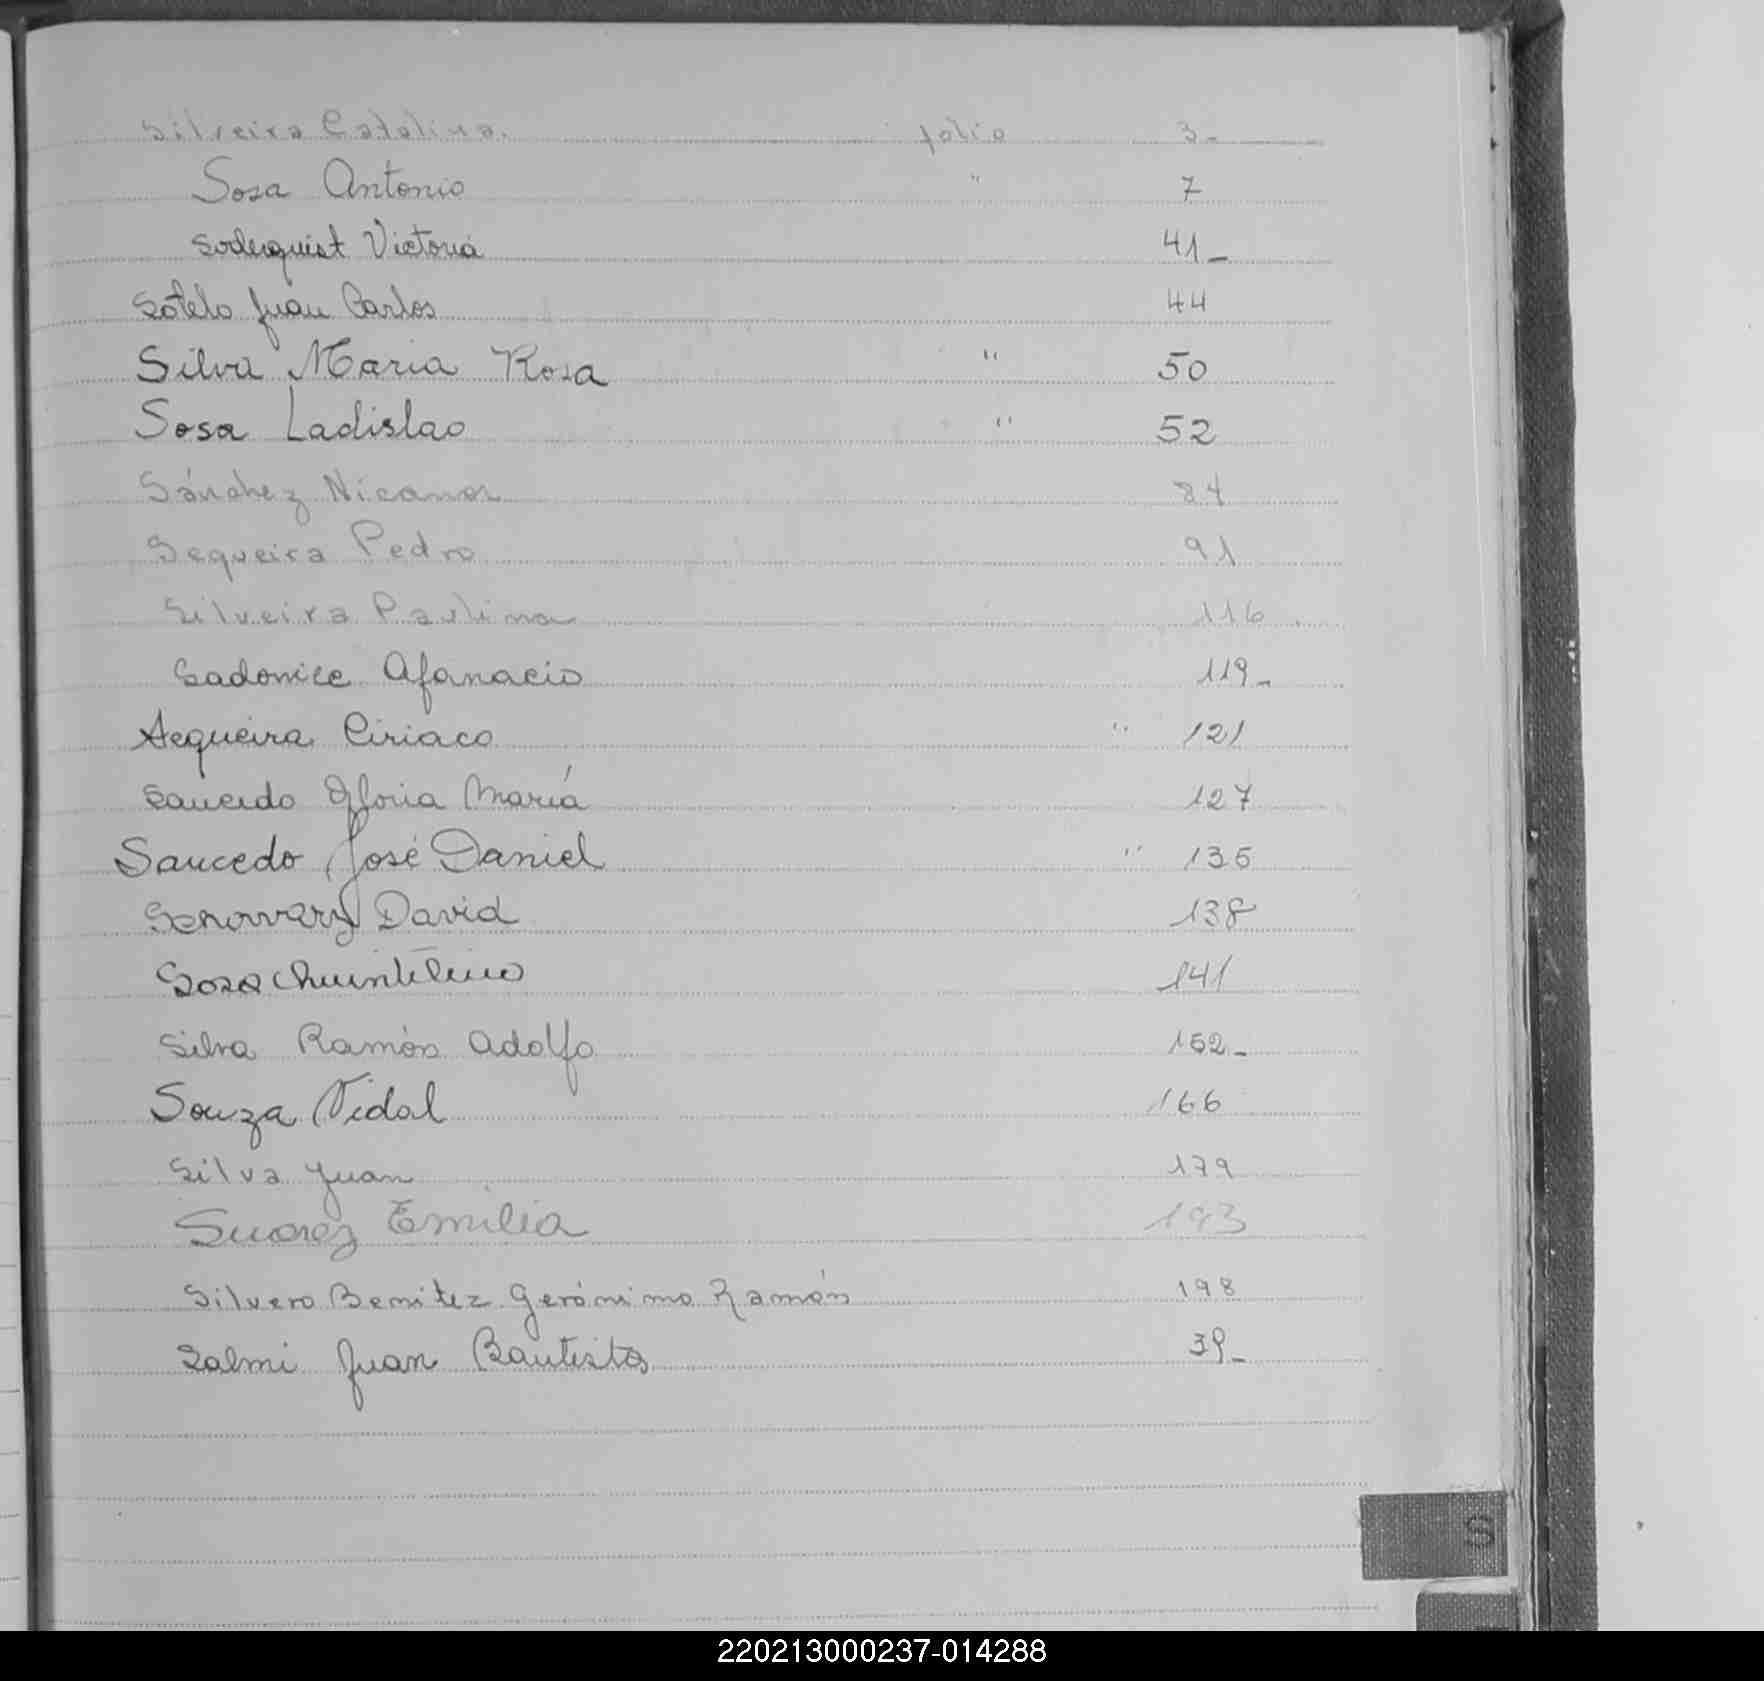 Silveira Catalina. folio 3-
Sosa Antonio " 7
Soderquist Victoria 41-
Sotelo Juan Carlos 44
Silva Maria Rosa " 50
Sosa Ladislao " 52
Sánchez Nicanor 84
Sequeira Pedro 91
Silveira Paulina 116
Afanacio 119-
Sequeira Ciriaco " 121
Saucedo Gloria María 127
Saucedo José Daniel " 135
David 138
Sosa 141
Silva Ramón Adolfo 152-
Souza Vidal 166
Silva Juan 179
Suarez Emilia 193
Silvero Benitez Gerónimo Ramón 198
Salmi Juan Bautista 39-
S
220213000237-014288